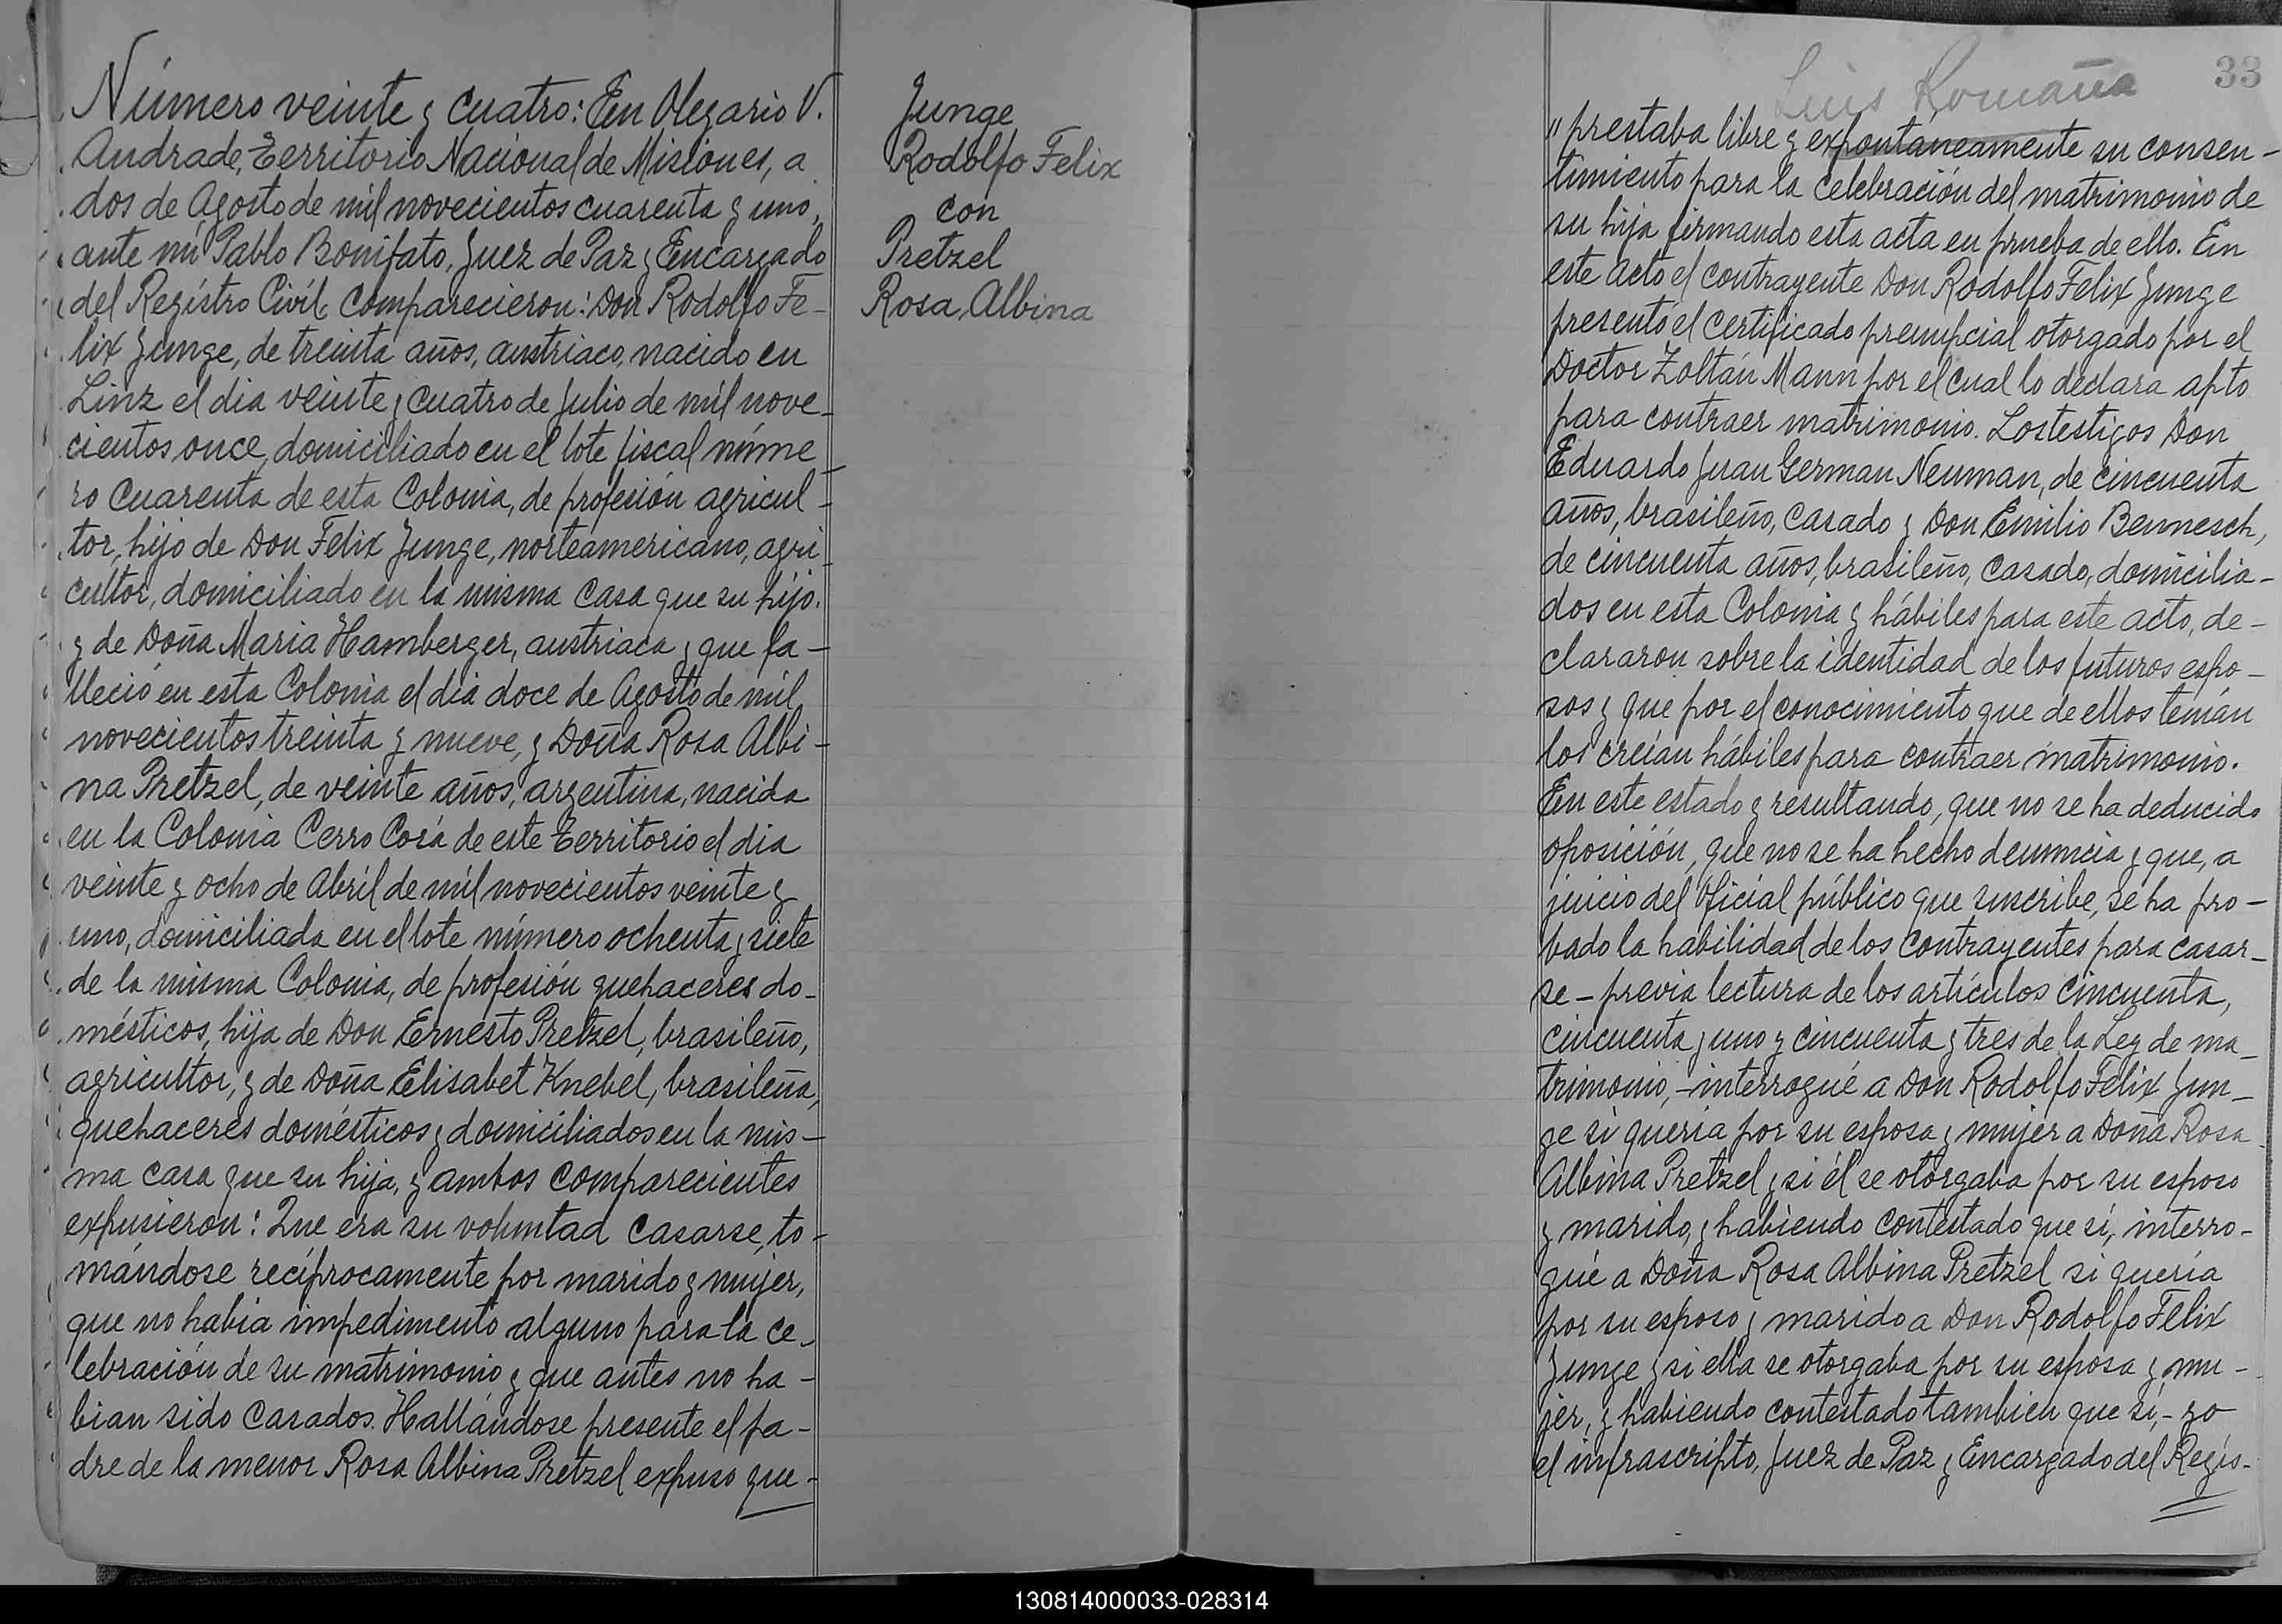 Número veinte y cuatro: En Olegario V.
Andrade, Territorio Nacional de Misiones, a
dos de Agosto de mil novecientos cuarenta y uno,
ante mí Pablo Bonifato, Juez de Paz y Encargado
del Registro Civíl, comparecieron: Don Rodolfo Fe-
lix Junge, de treinta años, austriaco, nacido en
Linz el dia veinte y cuatro de Julio de mil nove-
cientos once, domiciliado en el lote fiscal núme-
ro cuarenta de esta Colonia, de profesión agricul-
tor, hijo de Don Felix Junge, norteamericano, agri-
cultor, domiciliado en la misma casa que su hijo.
y de Doña Maria Hamberger, austriaca y que fa-
lleció en esta Colonia el dia doce de Agosto de mil
novecientos treinta y nueve, y Doña Rosa Albi-
na Pretzel, de veinte años, argentina, nacida
en la Colonia Cerro Corá de este Territorio el dia
veinte y ocho de Abríl de mil novecientos veinte y
uno, domiciliada en el lote número ochenta y siete
de la misma Colonia, de profesión quehaceres do-
mésticos, hija de Don Ernesto Pretzel, brasileño,
agricultor, y de Doña Elisabet Knebel, brasileña,
quehaceres domésticos y domiciliados en la mis-
ma casa que su hija, y ambos comparecientes
expusieron: Que era su voluntad casarse, to-
mándose recíprocamente por marido y mujer,
que no habia impedimento alguno para la ce-
lebración de su matrimonio y que antes no ha-
bian sido casados. Hallándose presente el pa-
dre de la menor Rosa Albina Pretzel expuso que-
Junge
Rodolfo Felix
con
Pretzel
Rosa Albina
Luis Romaña
33
"prestaba libre y expontáneamente su consen-
timiento para la celebración del matrimonio de
su hija firmando esta acta en prueba de ello. En
este acto el contrayente Don Rodolfo Felix Junge
presentó el certificado prenupcial otorgado por el
Doctor Zoltán Mann por el cual lo declara apto
para contraer matrimonio. Los testigos Don
Eduardo Juan German Neuman, de cincuenta
años, brasileño, casado y Don Emilio Bennesch,
de cincuenta años, brasileño, casado, domicilia-
dos en esta Colonia y hábiles para este acto, de-
clararon sobre la identidad de los futuros espo-
sos y que por el conocimiento que de ellos tenían
los creían hábiles para contraer matrimonio.
En este estado y resultando, que no se ha deducido
oposición, que no se ha hecho denuncia y que, a
juicio del Oficial público que suscribe, se ha pro-
bado la habilidad de los contrayentes para casar-
se - previa lectura de los artículos cincuenta,
cincuenta y uno y cincuenta y tres de la Ley de ma-
trimonio, - interrogué a Don Rodolfo Felix Jun-
ge si quería por su esposa y mujer a Doña Rosa
Albina Pretzel y si él se otorgaba por su esposo
y marido, y habiendo contestado que sí, interro-
gué a Doña Rosa Albina Pretzel si quería
por su esposo y marido a Don Rodolfo Felix
Junge y si ella se otorgaba por su esposa y mu-
jer, y habiendo contestado tambien que sí, - yo
el infrascripto, Juez de Paz y Encargado del Regis-
130814000033-028314